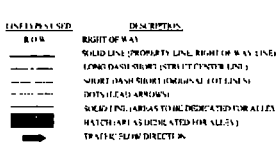 LINETYPES USED DESCRIPTION.
R.O.W RIGHT OF WAY
SOLID LINE (PROPERTY LINE, RIGHT OF WAY LINE)
LONG DASH SHORT (STREET CENTER LINE)
SHORT DASH SHORT (ORIGINAL LOT LINES)
DOTS (LEAD ARROWS)
SOLID LINE (AREAS TO BE DEDICATED FOR ALLEY
HATCH (AREAS DEDICATED FOR ALLEY)
TRAFFIC FLOW DIRECTION